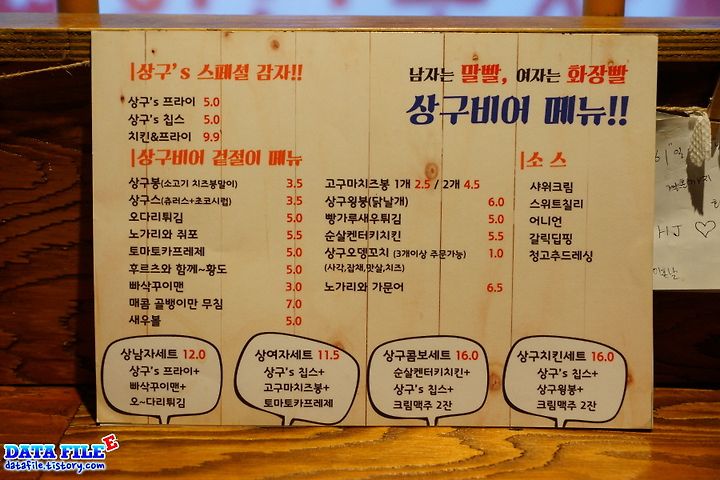 |상구's 스페셜 감자!!
상구's 프라이 5.0
상구's 칩스 5.0
치킨&프라이 9.9
남자는 말빨, 여자는 화장빨
상구비어 메뉴!!
|상구비어 겉절이 메뉴
상구봉(소고기 치즈봉말이) 3.5
상구스(츄러스+초코시럽) 3.5
오다리튀김 5.0
노가리와 쥐포 5.5
토마토카프레제 5.0
후르츠와 함께~황도 5.0
빠삭꾸이맨 3.0
매콤 골뱅이만 무침 7.0
새우볼 5.0
고구마치즈봉 1개 2.5 / 2개 4.5
상구윙봉(닭날개) 6.0
빵가루새우튀김 5.0
순살켄터키치킨 5.5
상구오뎅꼬치 (3개이상 주문가능) 1.0
(사각,잡채,맛살,치즈)
노가리와 가문어 6.5
|소 스
샤워크림
스위트칠리
어니언
갈릭딥핑
청고추드레싱
상남자세트 12.0
상구's 프라이+
빠삭꾸이맨+
오~다리튀김
상여자세트 11.5
상구's 칩스+
고구마치즈봉+
토마토카프레제
상구콤보세트 16.0
순살켄터키치킨+
상구's 칩스+
크림맥주 2잔
상구치킨세트 16.0
상구's 칩스+
상구윙봉+
크림맥주 2잔
HJ ♡
DATA FILE
datafile.tistory.com